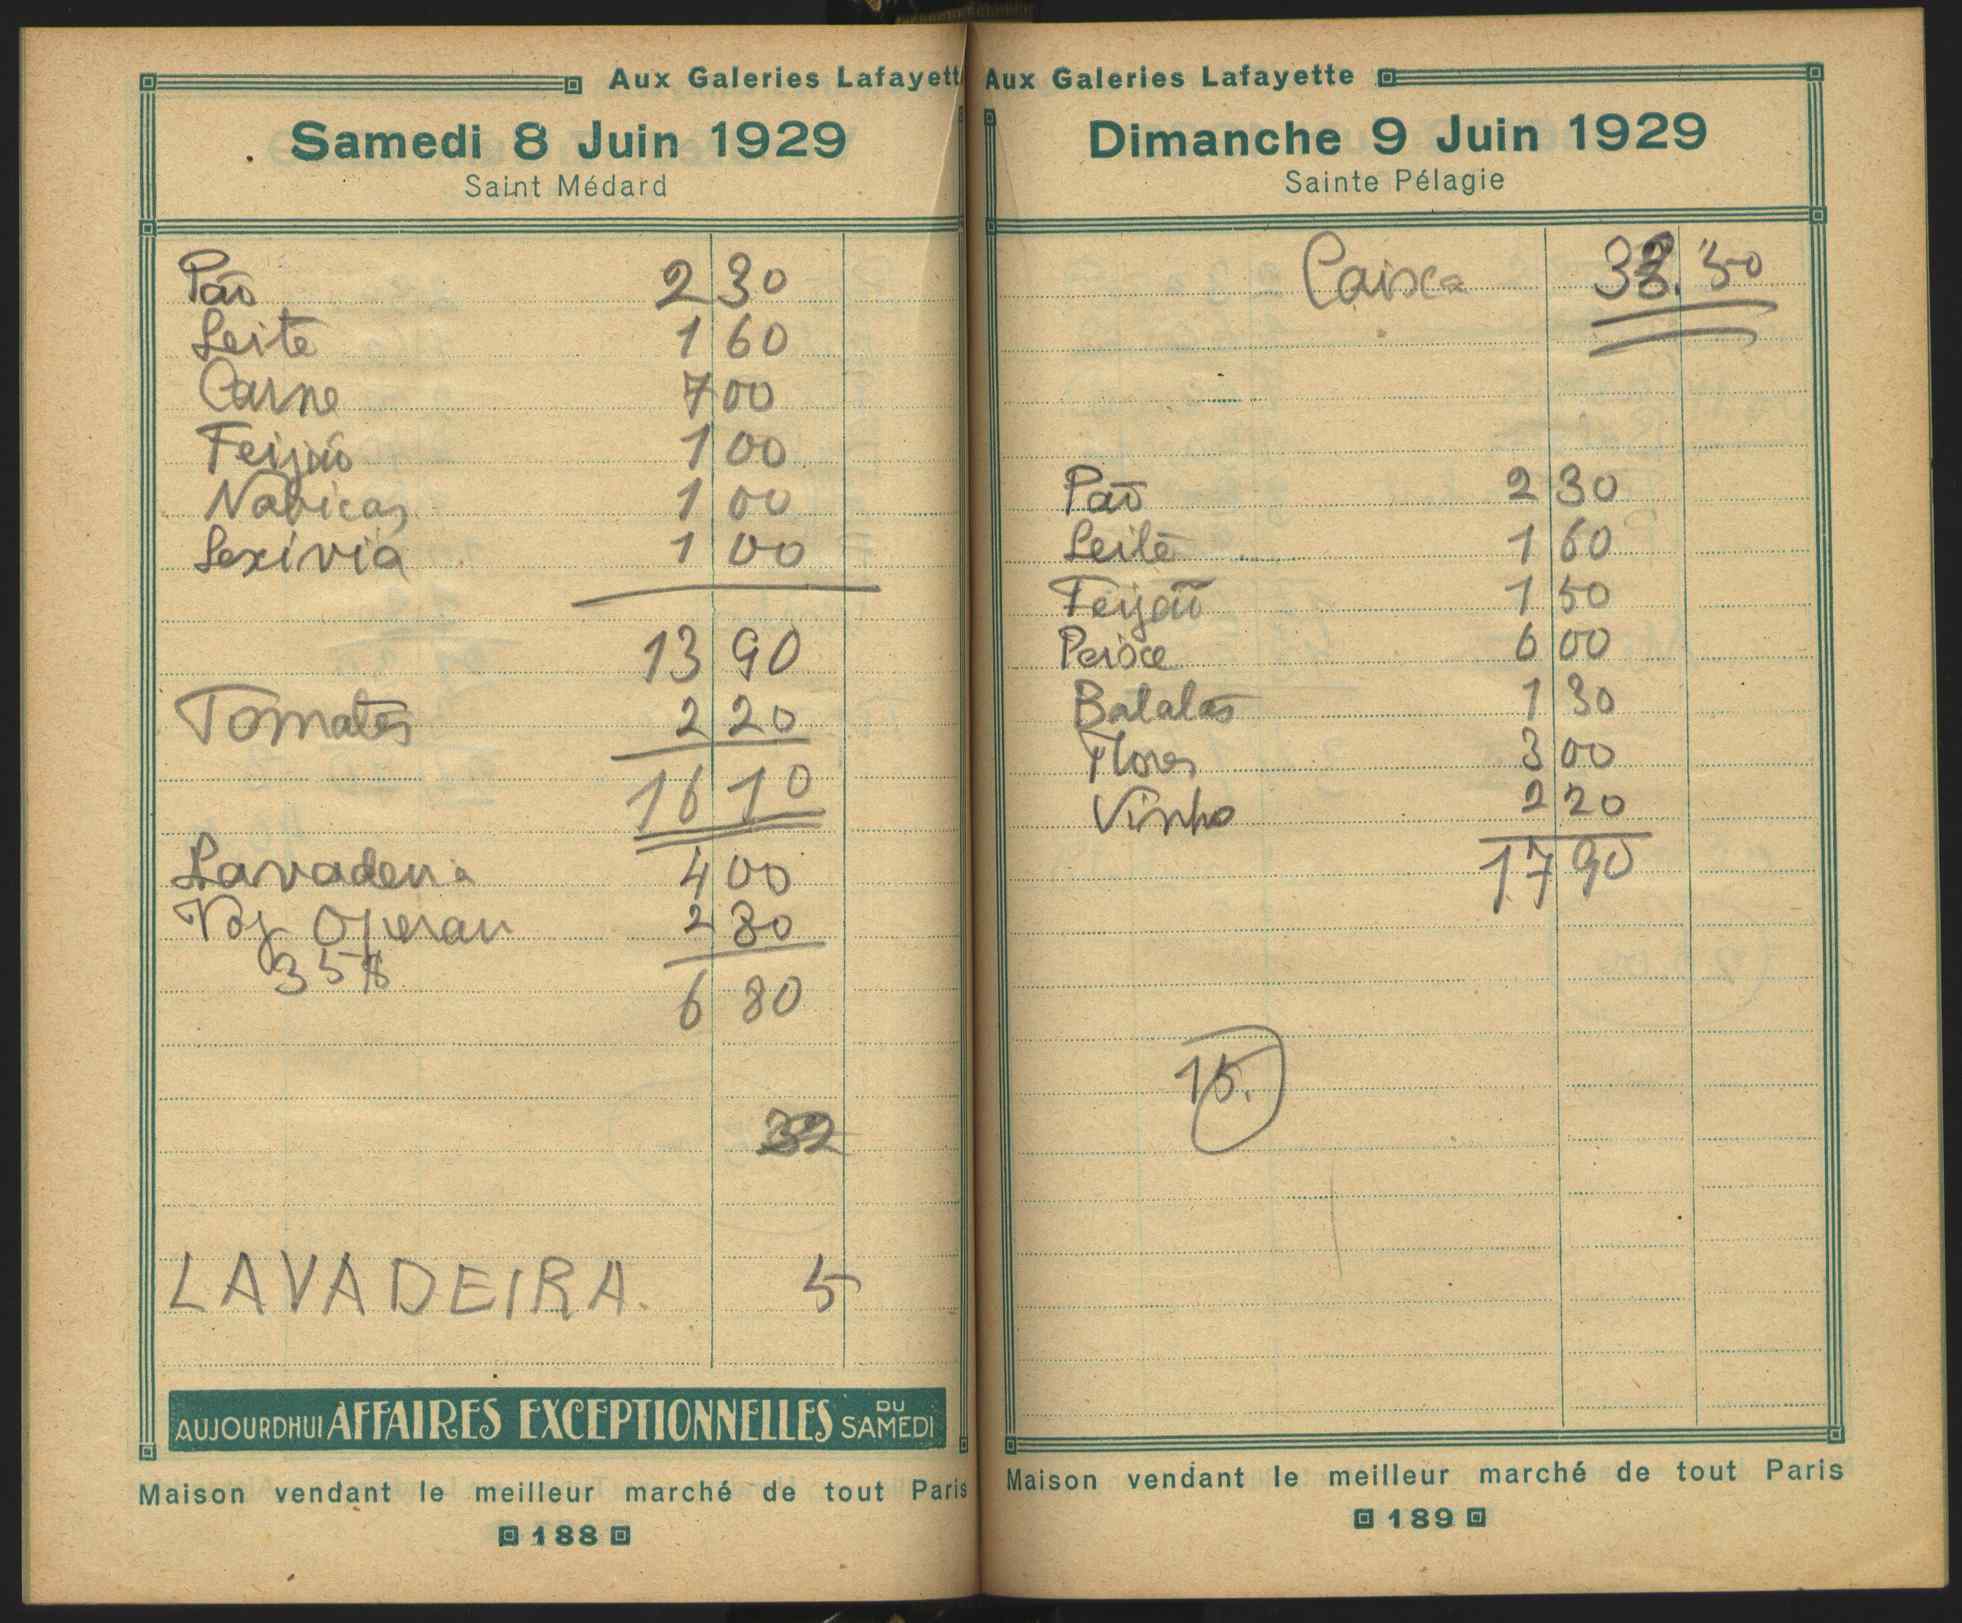 Aux Galeries Lafayett
Samedi 8 Juin 1929
Saint Médard
Pão 2 30
Leite 1 60
Carne 7 00
Feijão 1 00
Nabiças 1 00
Lexivia 1 00
13 90
Tomates 2 20
16 10
Lavadeira 4 00
Operan 2 80
35%
6 80
32
LAVADEIRA. 5
AUJOURDHUI AFFAIRES EXCEPTIONNELLES DU SAMEDI
Maison vendant le meilleur marché de tout Paris
188
Aux Galeries Lafayette
Dimanche 9 Juin 1929
Sainte Pélagie
Caixa 33.30
Pão 2 30
Leite 1 60
Feijão 1 50
Peixe 6 00
Batatas 1 30
Flores 3 00
Vinho 2 20
17 90
15.
Maison vendant le meilleur marché de tout Paris
189